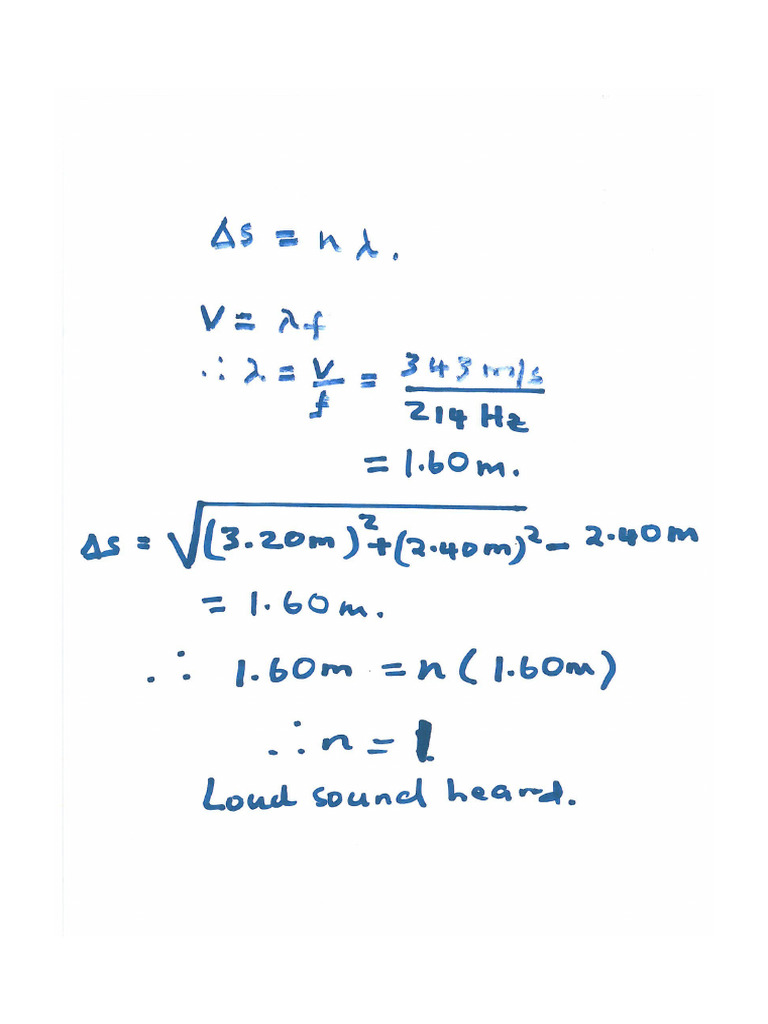 Δs = nλ.
V = λf
∴ λ = V/f = 343 m/s / 214 Hz
= 1.60 m.
Δs = √((3.20m)² + (2.40m)²) - 2.40m
= 1.60 m.
∴ 1.60m = n(1.60m)
∴ n = 1
Loud sound heard.